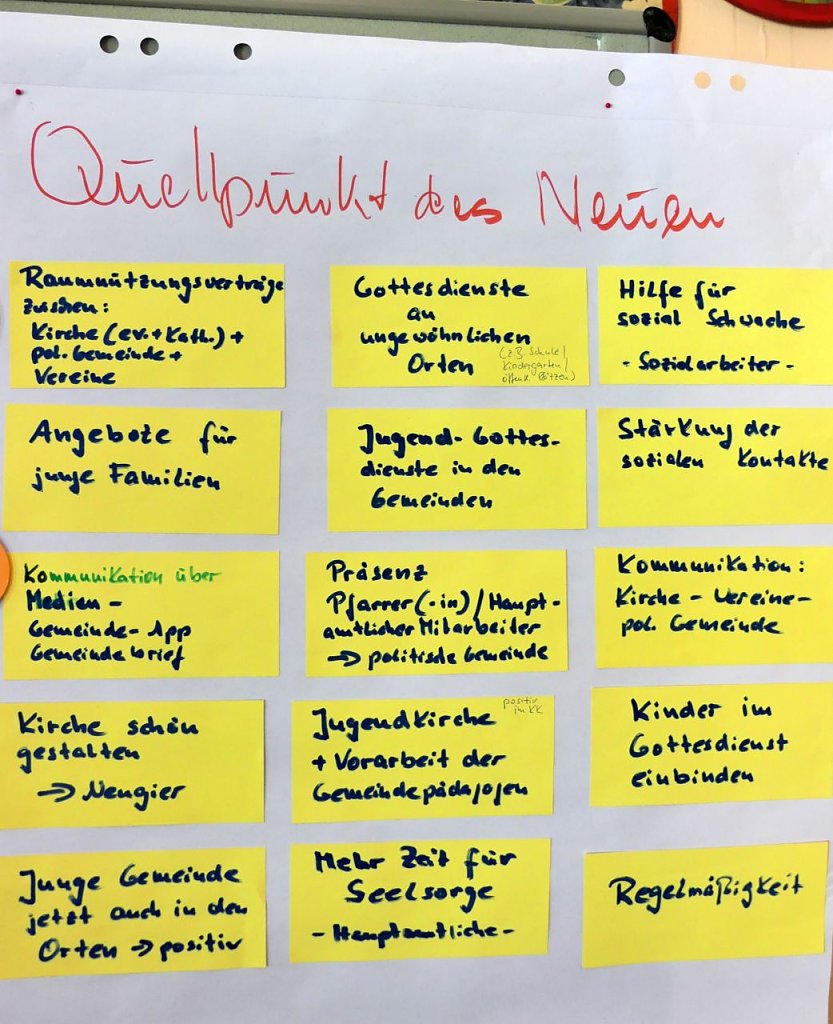 Quellpunkt des Neuen
Raumnützungsverträge
zwischen:
Kirche (ev.+Kath.) +
pol. Gemeinde +
Vereine
Gottesdienste
an
ungewöhnlichen
Orten
(z.B. Schule/
Kindergarten/
öffentl. Plätzen)
Hilfe für
sozial Schwache
- Sozialarbeiter -
Angebote für
junge Familien
Jugend-Gottes-
dienste in den
Gemeinden
Stärkung der
sozialen Kontakte
Kommunikation über
Medien -
Gemeinde-App
Gemeindebrief
Präsenz
Pfarrer(-in)/Haupt-
amtlicher Mitarbeiter
→ politische Gemeinde
Kommunikation:
Kirche - Vereine -
pol. Gemeinde
Kirche schön
gestalten
→ Neugier
positiv
im KK
Jugendkirche
+ Vorarbeit der
Gemeindepädagogen
Kinder im
Gottesdienst
einbinden
Junge Gemeinde
jetzt auch in den
Orten → positiv
Mehr Zeit für
Seelsorge
- Hauptamtliche -
Regelmäßigkeit